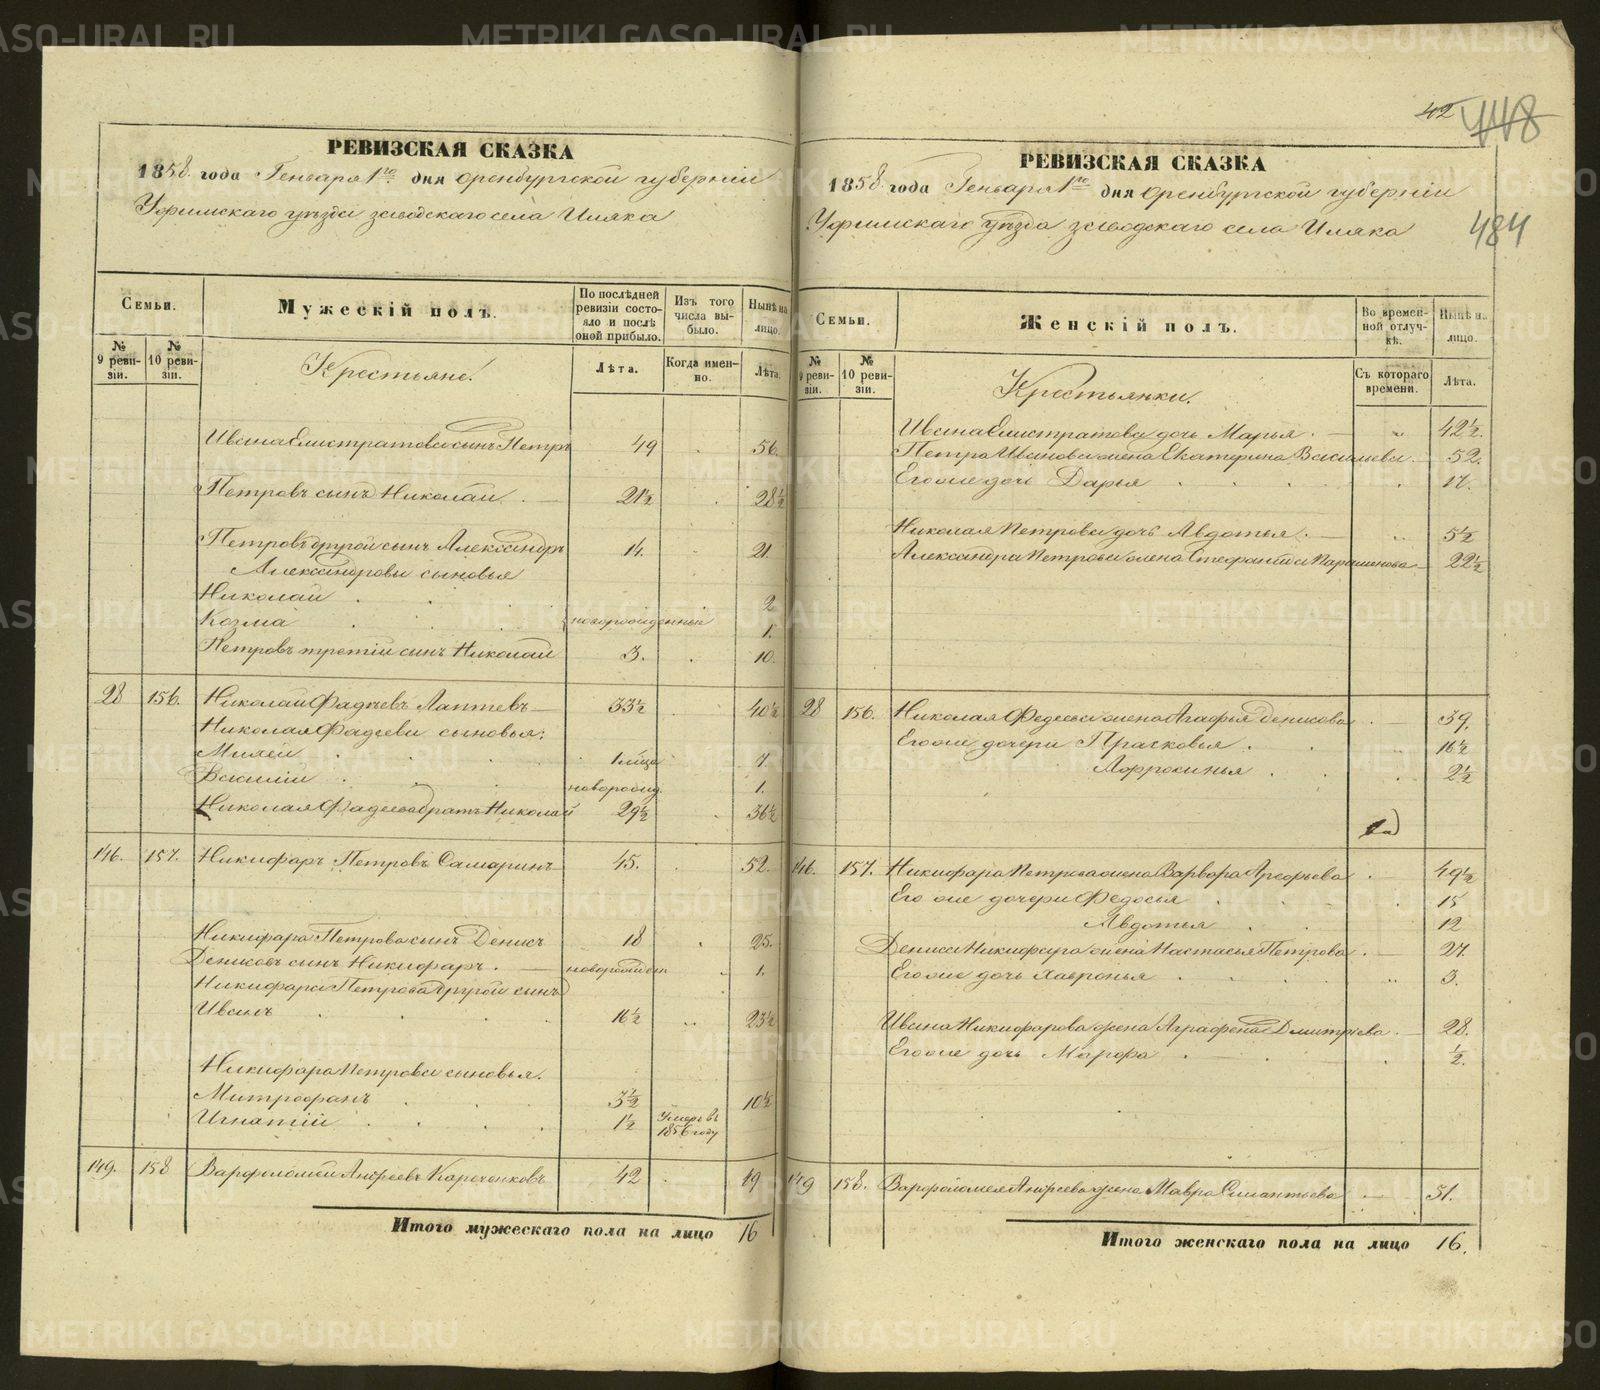 РЕВИЗСКАЯ СКАЗКА
1858 года Генваря 1го дня Оренбургской губернии
Уфимскаго уѣзда заводскаго села Иляка
Семьи.
Мужескій полъ.
По послѣдней ревизіи состояло и послѣ оной прибыло.
Изъ того числа выбыло.
Нынѣ на лицо.
№ 9 ревизіи.
№ 10 ревизіи.
Крестьяне.
Лѣта.
Когда именно.
Лѣта.
Ивана Елистратова сынъ Петръ 49 56.
Петровъ сынъ Николай 21½ 28½
Петровъ другой сынъ Александръ 14. 21.
Александровы сыновья
Николай 2
Козма новорожденный 1.
Петровъ третій сынъ Николай 3. 10.
28 156. Николай Фадѣевъ Лаптевъ 33½ 40½
Николая Фадѣева сыновья:
Василій новорожд. 1.
Николая Фадѣева братъ Николай 29½ 36½
146. 157. Никифаръ Петровъ Самаринъ 45. 52.
Никифара Петрова сынъ Денисъ 18 25.
Денисовъ сынъ Никифаръ новорожден 1.
Никифара Петрова другой сынъ
Иванъ 16½ 23½
Никифара Петрова сыновья.
Митрофанъ 3½ 10½
Игнатій 1½ Умеръ въ 1856 году
149. 158 Варфоломей Андреевъ 42 49
Итого мужескаго пола на лицо 16
42
448
484
РЕВИЗСКАЯ СКАЗКА
1858 года Генваря 1го дня Оренбургской губерніи
Уфимскаго уѣзда заводскаго села Иляка
Семьи.
Женскій полъ.
Во временной отлучкѣ.
Нынѣ на лицо.
№ 9 ревизіи.
№ 10 ревизіи.
Крестьянки.
Съ котораго времени.
Лѣта.
Ивана Елистратова дочь Марья 42½.
Петра Иванова жена Екатерина Васильева 52.
Его же дочь Дарья 17.
Николая Петрова дочь Авдотья 5½
Александра Петрова жена Стефанида Парамонова 22½
28 156. Николая Федеева жена Агафья Денисова 39.
Его же дочери Прасковья 16½
Афросинья 2½
146. 157. Никифара Петрова жена Варвара Арефьева 49½
Его же дочери Федосья 15
Авдотья 12
Дениса Никифара жена Настасья Петрова 27.
Его же дочь Хавронья 3.
Ивана Никифарова жена Аграфена Дмитріева 28.
Его же дочь Марфа ½.
149 158. Варфоломея Андреева жена Мавра 51.
Итого женскаго пола на лицо 16.